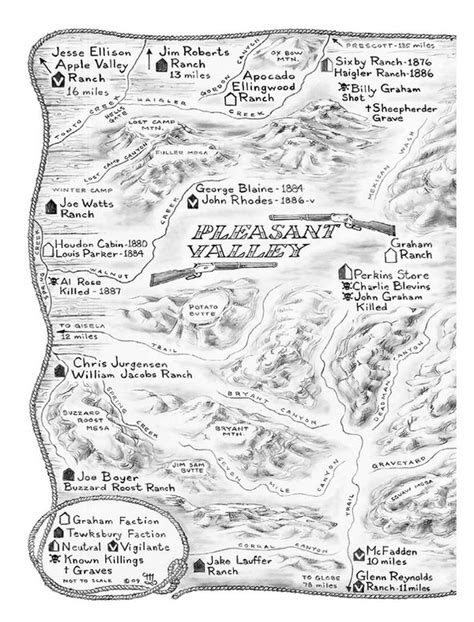 Jesse Ellison
Apple Valley
Ranch
16 miles
Jim Roberts
Ranch
13 miles
OX BOW
MTN.
GORDON CANYON
Apocado
Ellingwood
Ranch
PRESCOTT-135 miles
Sixby Ranch-1876
Haigler Ranch-1886
Billy Graham
Shot
Sheepherder
Grave
TONTO CREEK
HELLS GATE
HAIGLER CREEK
LOST CAMP
MTN.
LOST CAMP CANYON
FULLER MESA
MEXICAN WASH
WINTER CAMP
Joe Watts
Ranch
George Blaine - 1884
John Rhodes - 1886-v
PLEASANT
VALLEY
Houdon Cabin-1880
Louis Parker-1884
WALNUT CREEK
SPRING CREEK
Al Rose
Killed - 1887
Graham
Ranch
Perkins Store
Charlie Blevins
John Graham
Killed
POTATO
BUTTE
TO GISELA
12 miles
TRAIL
Chris Jurgensen
William Jacobs Ranch
BUZZARD
ROOST
MESA
SPRING CREEK
BRYANT CANYON
BRYANT
MTN.
DEADMAN CANYON
JIM SAM
BUTTE
SEVEN MILE CANYON
GRAVEYARD
SQUAW MESA
TRAIL
Joe Boyer
Buzzard Roost Ranch
Graham Faction
Tewksbury Faction
Neutral Vigilante
Known Killings
Graves
NOT TO SCALE ©09
CORRAL CANYON
Jake Lauffer
Ranch
TO GLOBE
78 miles
McFadden
10 miles
Glenn Reynolds
Ranch-11 miles